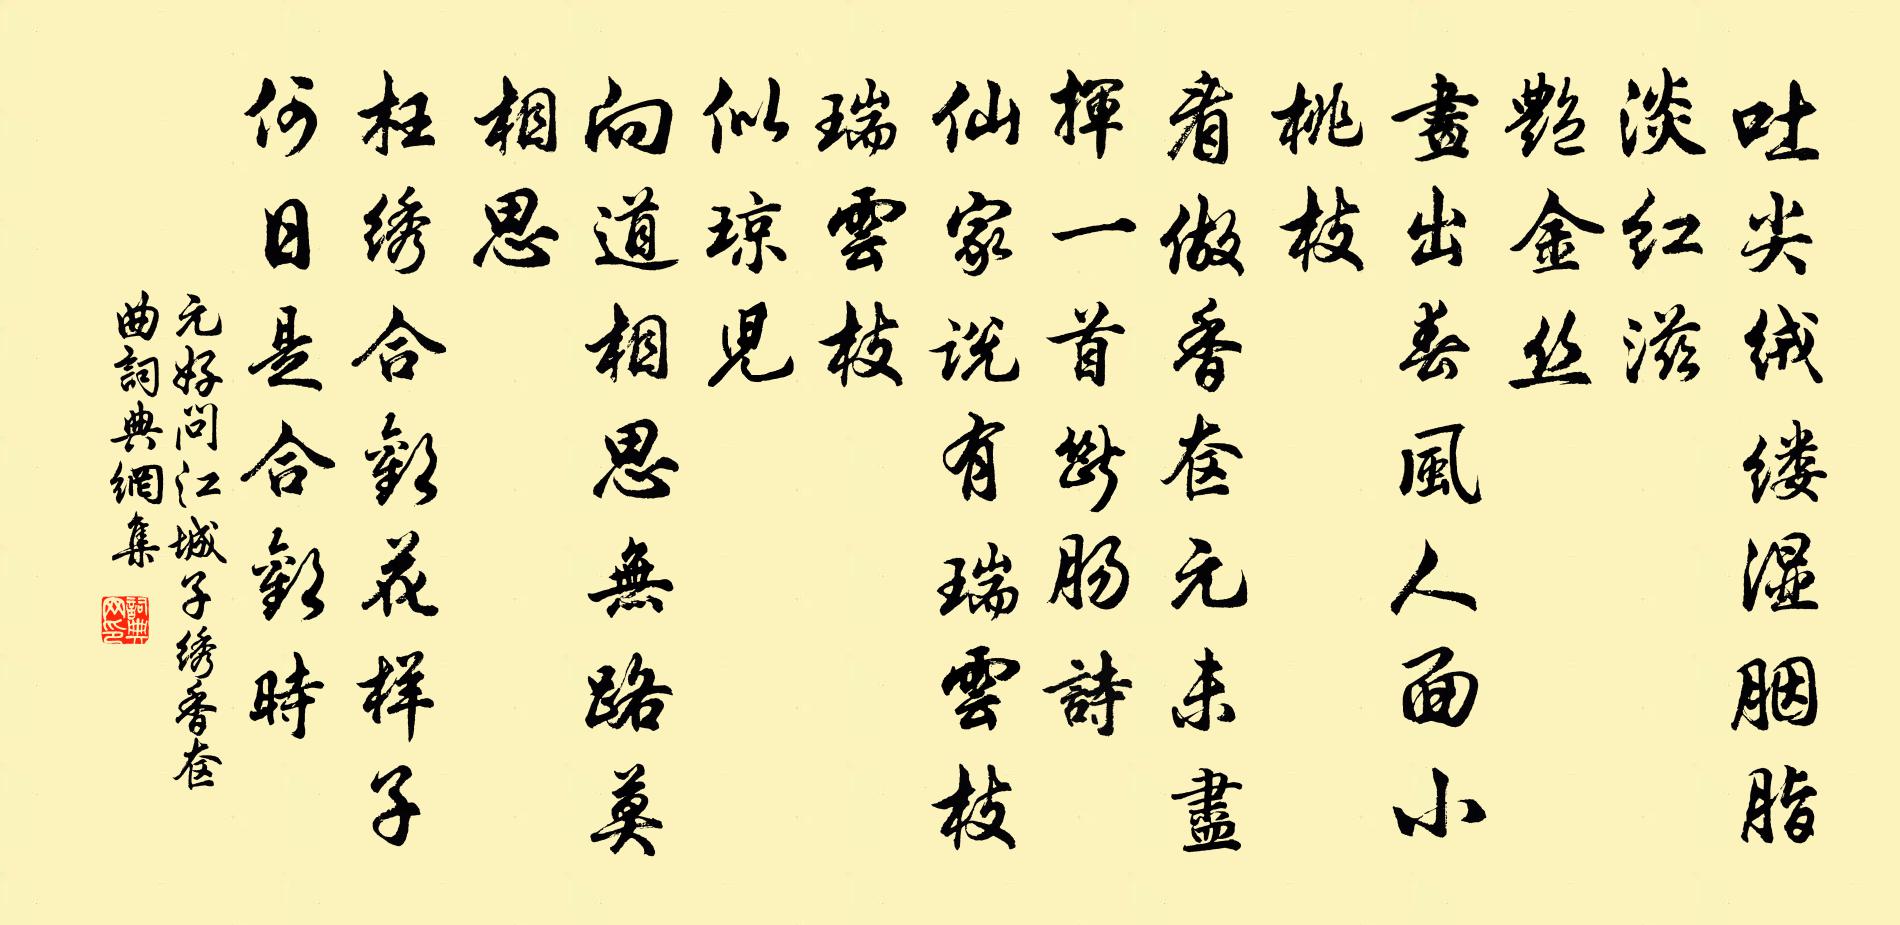 吐尖绒缕湿胭脂
淡红滋
艷金丝
畫出春風人面小
桃枝
看做香奁元未盡
揮一首斷肠詩
仙家说有瑞雲枝
瑞雲枝
似琼兒
向道相思無路莫
相思
枉绣合歡花样子
何日是合歡時
元好问江城子绣香奁
曲詞典網集
詞典网印